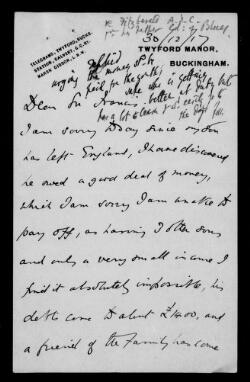 re Fitzgerald A.J.C.
30/12/17
TELEGRAMS, TWYFORD, BUCKS.
STATION, CALVERT, G.C.RY.
MARSH GIBBON, L.N.W.
TWYFORD MANOR,
BUCKINGHAM.
replied
urging the money to be
paid for the sake,
wife who is getting
better at but
has a lot to learn
Dear Sir Francis.
I am sorry to say since my son
has left England, I have discovered
he owed a good deal of money,
which I am sorry I am unable to
pay off, as having 7 other sons
and only a very small income I
find it absolutely impossible, his
debts come to about £1400, and
a friend of the family has come